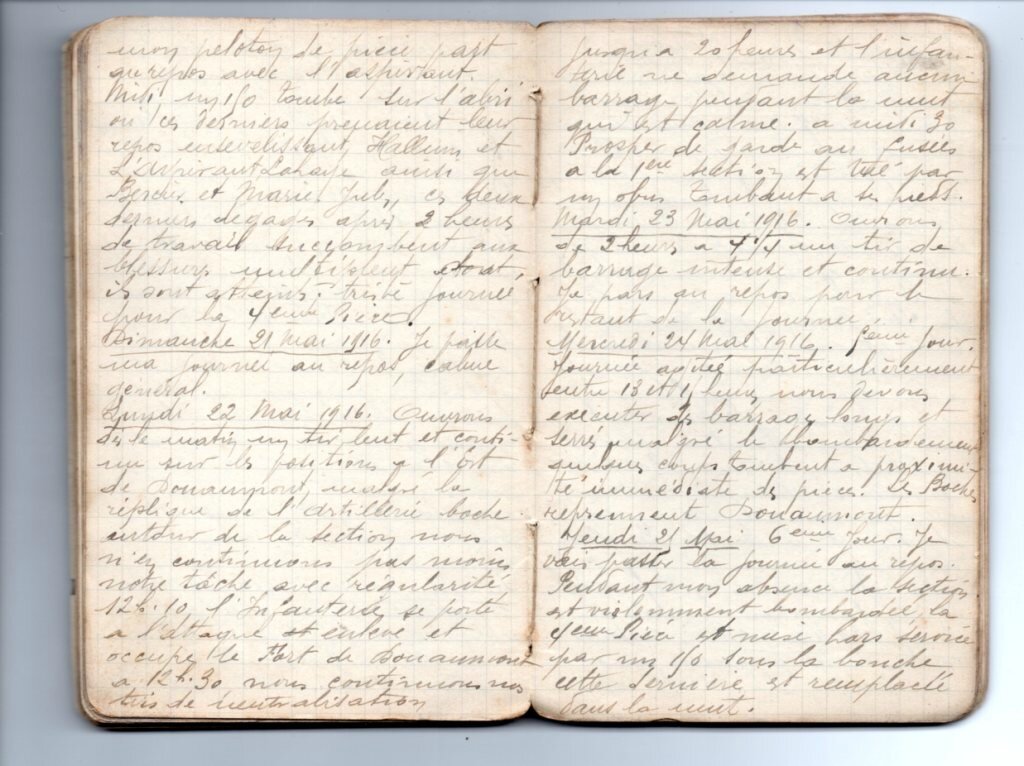 mon peloton de pièce part
au repos avec l'aspirant.
Midi, un 150 tombe sur l'abri
ou ces derniers prenaient leur
repos ensevelissant, Hallum et
L'Aspirant Lahaye ainsi que
et Marie Jub, ces deux
derniers dégagés après 2 heures
de travail succombent aux
blessures multiples dont,
ils sont atteints. triste journée
pour la 4eme Pièce.
Dimanche 21 Mai 1916. Je passe
ma journée au repos, calme
général.
Lundi 22 Mai 1916. Ouvrons
dès le matin, un tir lent et conti-
nu sur les positions a l'Est
de Douaumont, malgré la
réplique de l'artillerie boche
autour de la section nous
n'en continuons pas moins
notre tâche avec régularité
12h.10, l'Infanterie se porte
a l'attaque enleve et
occupe le Fort de Douaumont
a 12h.30 nous continuons nos
tirs de neutralisation
Jusqu'a 20 heures et l'infan-
terie ne demande aucun
barrage pendant la nuit
qui est calme. a minuit 30
Prosper de garde au fusées
a la 1ere section est tué par
un obus tombant a ses pieds.
Mardi 23 Mai 1916. Ouvrons
de 2 heures a 4 1/4 un tir de
barrage intense et continu.
Je pars au repos pour le
restant de la journée.
Mercredi 24 Mai 1916. 5eme Jour.
Journée agitée particulièrement
entre 18 et heures nous devons
executer des barrages longs et
serrés malgré le bombardement
quelques coups tombent a proximi-
té immédiate des pieces. Les Boches
reprennent Douaumont.
Jeudi 25 Mai. 6eme Jour. Je
vais passer la journée au repos.
Pendant mon absence la section
est violemment bombardée, la
4eme Pièce est mise hors service
par un 150 sous la bouche
cette dernière est remplacée
dans la nuit.